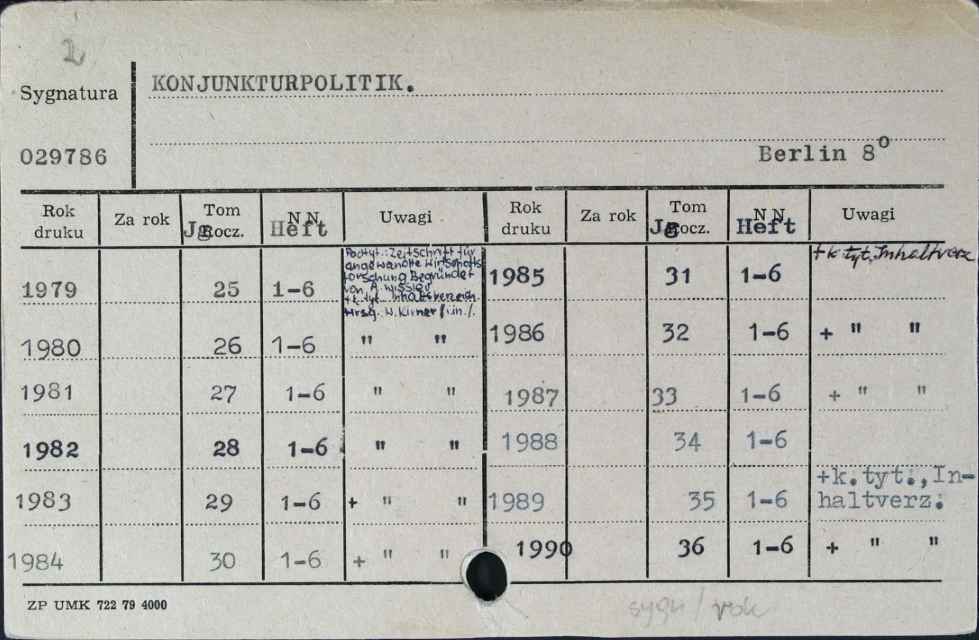 2
Sygnatura KONJUNKTURPOLITIK.
029786 Berlin 8º
Rok druku Za rok Tom Jg Rocz. N N. Heft Uwagi Rok druku Za rok Tom Jg Rocz. N N. Heft Uwagi
1979 25 1-6 Podtyt.: Zeitschrift für angewandte Wirtschafts forschung Begründet von A. Wissler +k. tyt. Inhaltsverzeich. Hrsg. W. Kirner /i in./. 1985 31 1-6 +k. tyt, Inhaltverz
1980 26 1-6 " " 1986 32 1-6 + " "
1981 27 1-6 " " 1987 33 1-6 + " "
1982 28 1-6 " " 1988 34 1-6
1983 29 1-6 + " " 1989 35 1-6 +k. tyt., In-haltverz.
1984 30 1-6 + " " 1990 36 1-6 + " "
ZP UMK 722 79 4000
sygn / rok